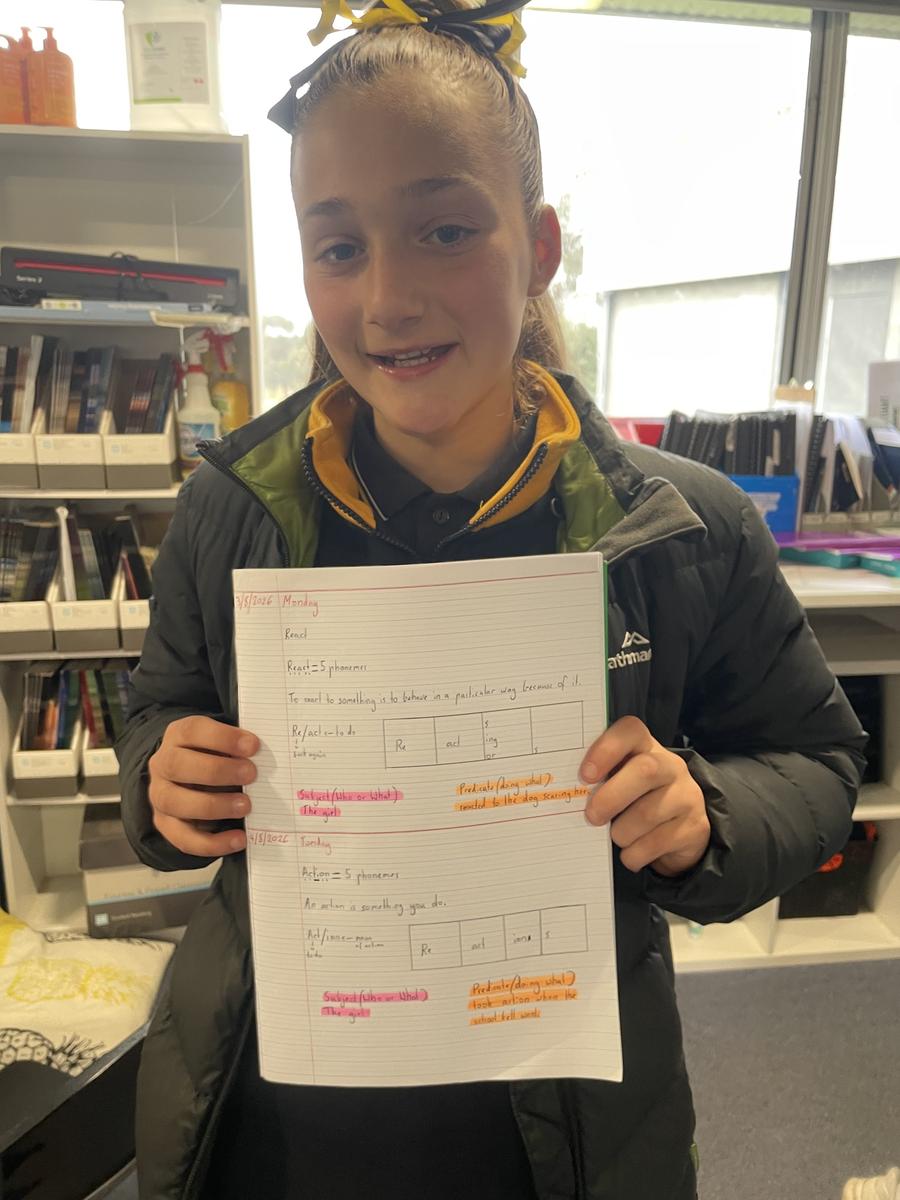 Series 2
3/8/2026 Monday
React
React = 5 phonemes
To react to something is to behave in a particular way because of it.
Re/act - to do
back again
Re act s
ing
or s
Subject (Who or What)
The girl
Predicate (doing what)
reacted to the dog scaring her
4/8/2026 Tuesday
Action = 5 phonemes
An action is something you do.
Act/ion
to do
of action
Re act ion s
Subject (Who or What)
The girl
Predicate (doing what)
took action when the
school bell went
athma